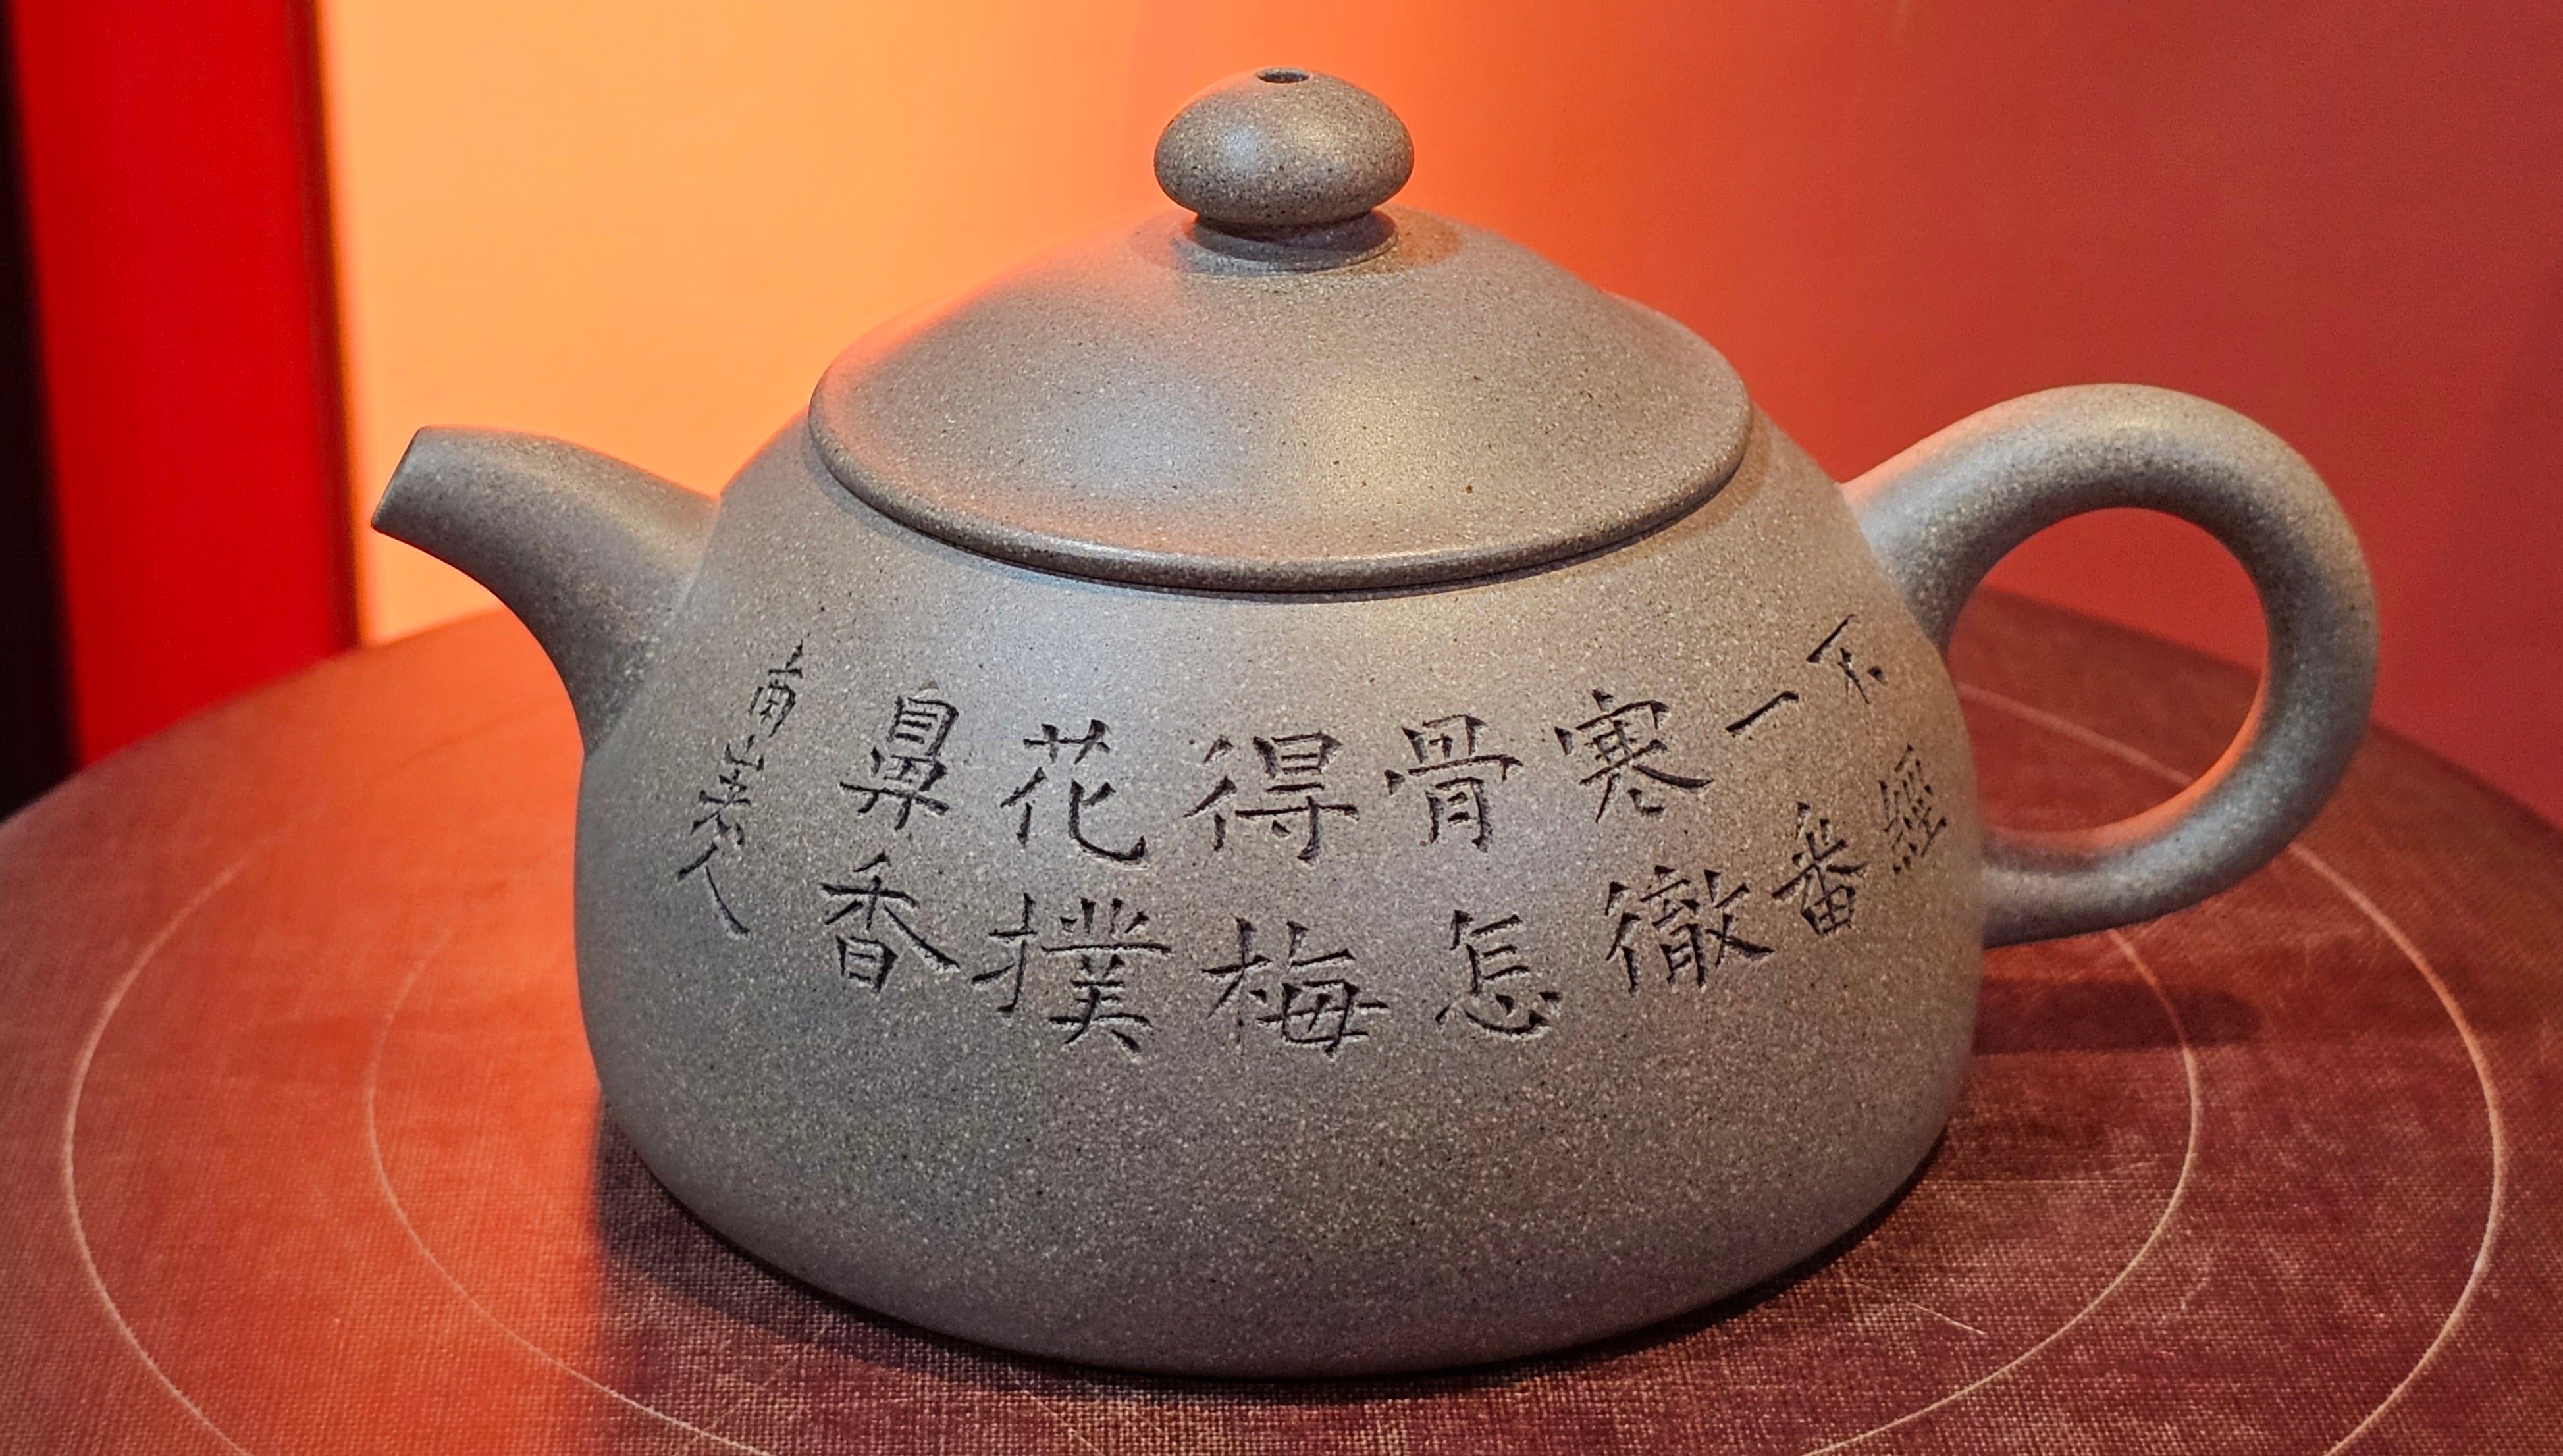 不經
一番
寒徹
骨怎
得梅
花撲
鼻香
南山老人